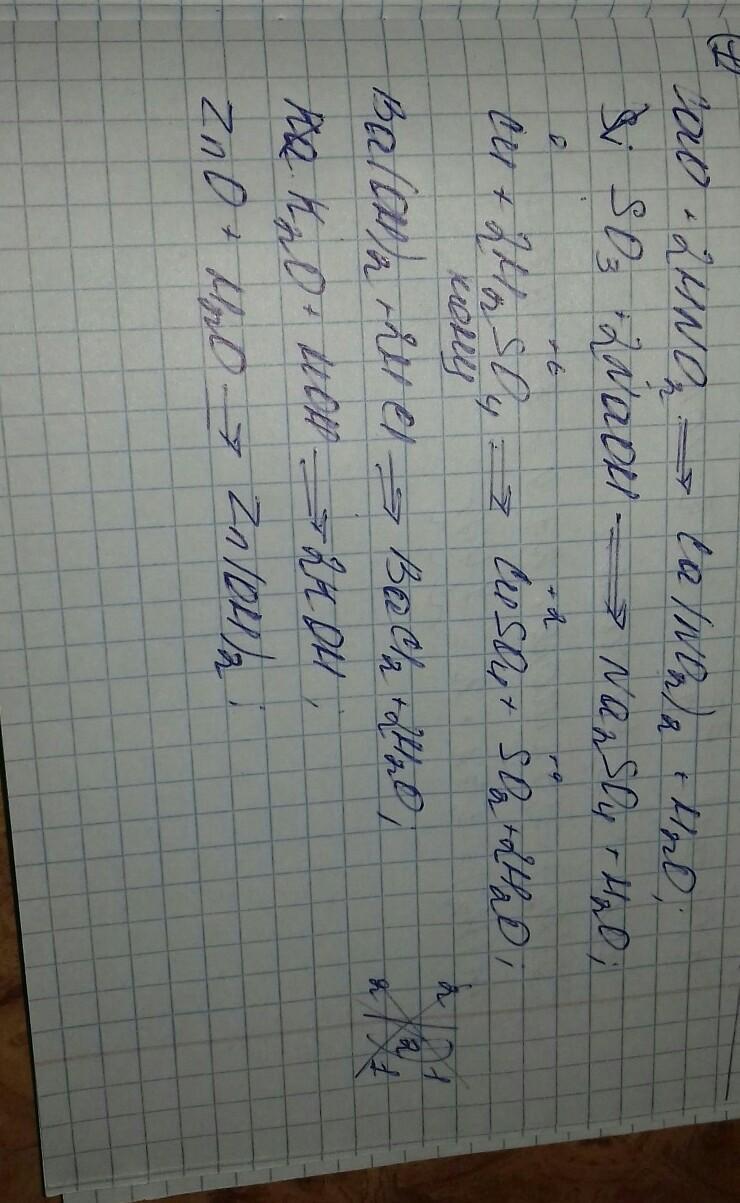 1
CaO + 2HNO₂ ⟹ Ca(NO₂)₂ + H₂O;
SO₃ + 2NaOH ⟹ Na₂SO₄ + H₂O;
0 +6 +2 +4
Cu + 2H₂SO₄ ⟹ CuSO₄ + SO₂ + 2H₂O;
конц
Ba(OH)₂ + 2HCl ⟹ BaCl₂ + 2H₂O;
K₂O + HOH ⟹ 2KOH;
ZnO + H₂O → Zn(OH)₂;
2 1
2
2 1